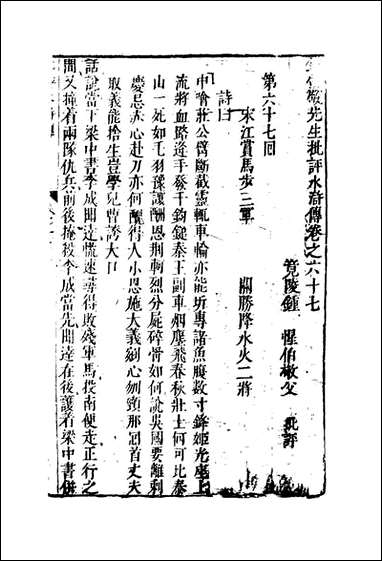 鍾伯敬先生批評水滸傳卷之六十七
竟陵鍾 惺伯敬父 批評
第六十七回
宋江賞馬步三軍 關勝降水火二將
詩曰
申噲莊公臂斷截靈輒車輪亦能折專諸魚腹數寸鋒姬光座上
流將血路逢手發千鈞鎚秦王副車烟塵飛春秋壯士何可比泰
山一死如毛羽豫讓酬恩荊軻烈分屍碎骨如何說吳國要離刺
慶忌赤心赴刃亦何醜得人小恩施大義剜心刎頸那回首丈夫
取義能捨生豈學兒曹誇大口
話說當下梁中書李成聞達慌速尋得敗殘軍馬投南便走正行之
間又撞着兩隊伏兵前後掩殺李成當先聞達在後護着梁中書併